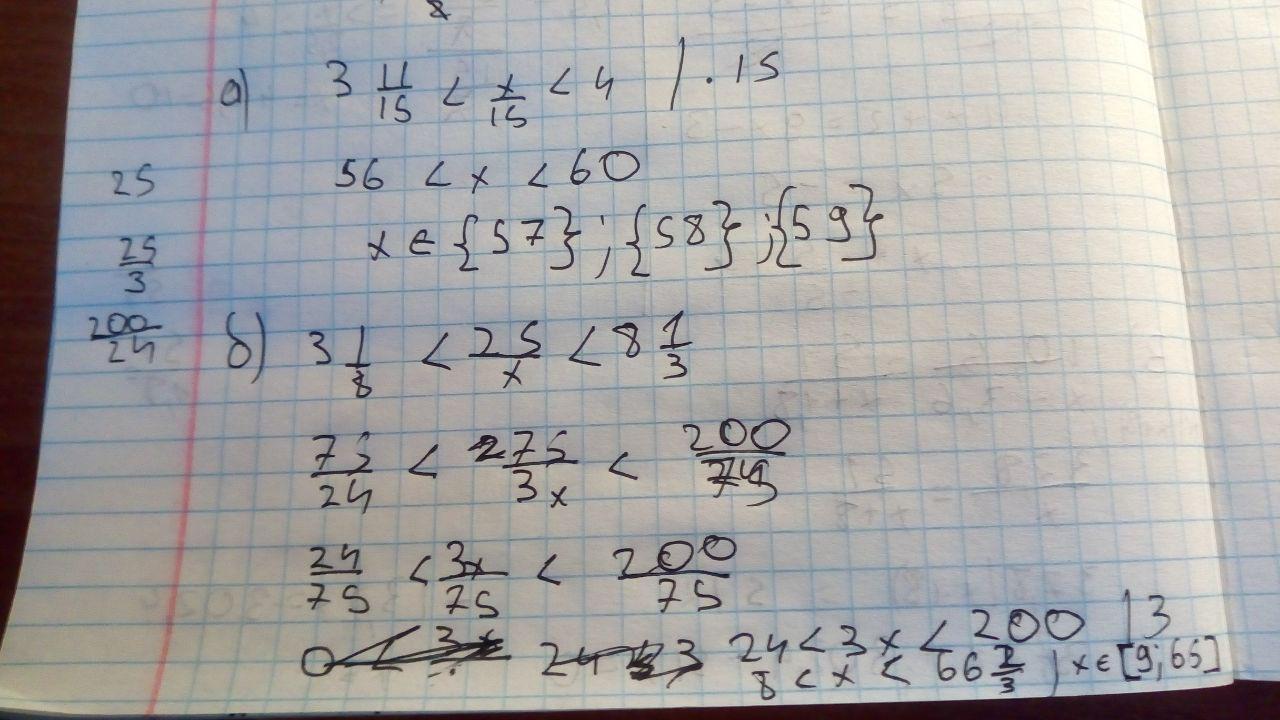 а) 3 11/15 < x/15 < 4 | · 15
25
56 < x < 60
x ∈ {57}; {58}; {59}
25/3
200/24
б) 3 1/8 < 25/x < 8 1/3
75/24 < 75/3x < 200/
24/75 < 3x/75 < 200/75
24 < 3x < 200 | 3
8 < x < 66 2/3 ; x ∈ [9; 65]